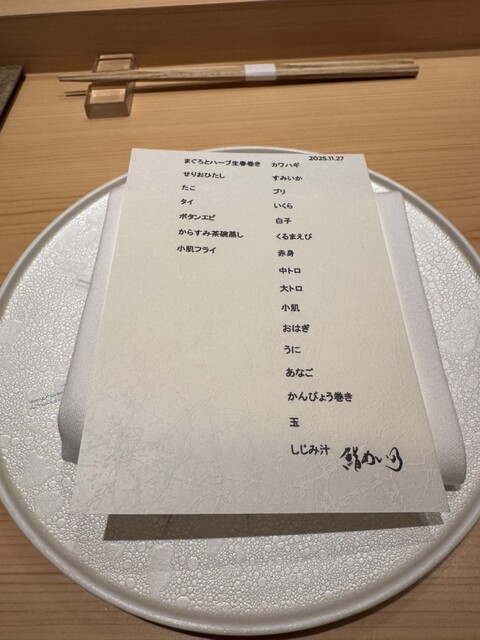 2025.11.27
まぐろとハーブ生春巻き
せりおひたし
たこ
タイ
ボタンエビ
からすみ茶碗蒸し
小肌フライ
カワハギ
すみいか
ブリ
いくら
白子
くるまえび
赤身
中トロ
大トロ
小肌
おはぎ
うに
あなご
かんぴょう巻き
玉
しじみ汁
鮨